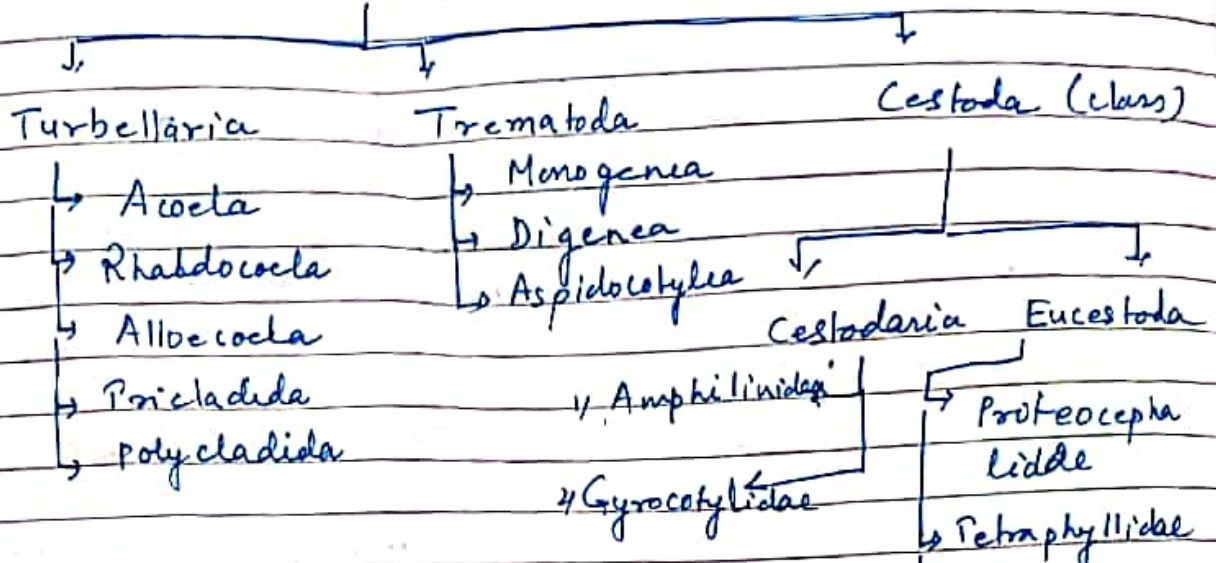 Turbellaria
Acoela
Rhabdocoela
Alloecoela
Tricladida
polycladida
Trematoda
Monogenea
Digenea
Aspidocotylea
Cestoda (class)
Cestodaria
1) Amphilinidae
2) Gyrocotylidae
Eucestoda
Proteocepha
lidae
Tetraphyllidae